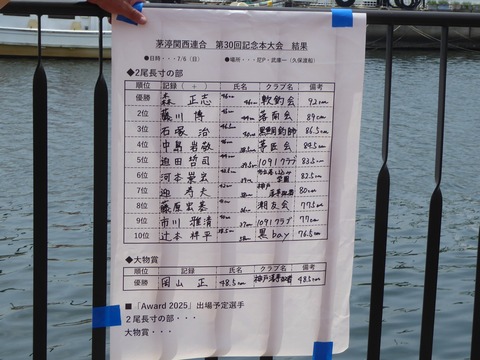 茅渟関西連合 第30回記念本大会 結果
●日時・・・7/6（日） ●場所・・・尼P・武庫一（久保渡船）
◆2尾長寸の部
順位 記録（ + ） 氏名 クラブ名 備考
優勝 森 正志 46cm 46cm 軟釣会 92cm
2位 藤川 博 落菊会 89cm
3位 石塚 治 46.5cm 40cm 黒鯛釣師 86.5cm
4位 中島 岩敬 38.5cm 茅匠会 84.5cm
5位 迫田 哲司 39.5cm 1091クラブ 83.5cm
6位 河本 崇宏 82.5cm
7位 迎 寿夫 38cm 神戸 80cm
8位 藤原 宏基 湘友会 77.5cm
9位 市川 雅清 37cm 1091クラブ 77cm
10位 辻本 祥平 38.5cm 38cm 黒bay 76.5cm
◆大物賞
順位 記録 氏名 クラブ名 備考
優勝 岡山 正 48.5cm 48.5cm
■「Award 2025」出場予定選手
2尾長寸の部・・・
大物賞・・・